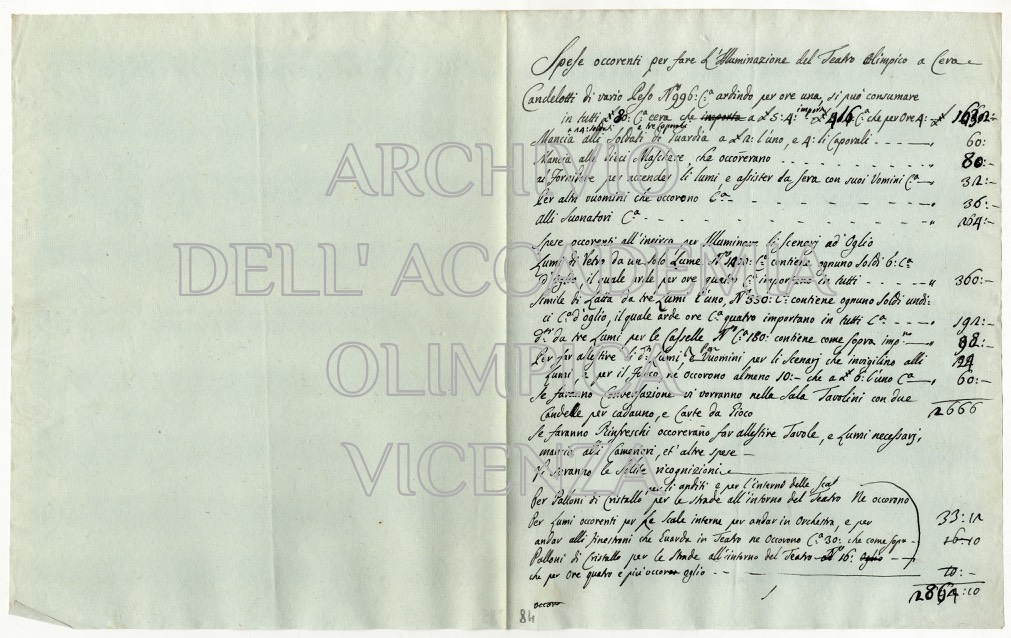 Spese occorenti per fare l'Illuminazione del Teatro Olimpico a Cera
Candelotti di vario Peso N.º 996: C.ª ardindo per ore una, si può consumare
in tutti 80: C.ª cera che importa a 5: 4: importa 416 C.ª che per Ore 4:
a 14: Soldati e tre Caporali
Mancia alli Soldati di Guardia a 2: l'uno, e 4: li Caporali 60:
Mancia alli Dieci Maschare che occorerano 80:-
al Fornidore per accender li lumi, e assister da sera con suoi Uomini C.ª 32:-
Per altri uuomini che occorono C.ª 36:-
alli Suonatori C.ª 264:-
Spese occorenti all'incirca per Illuminare li Scenarj ad Oglio
Lumi di Vetro da un solo Lume N.º C.ª contiene ognuno Soldi 6: C.ª
d'Oglio, il quale arde per ore quatro C.ª importano in tutti 360:-
Simile di Latta da tre Lumi l'uno, N.º 330: C.ª contiene ognuno Soldi undi:
ci C.ª d'oglio, il quale arde ore C.ª quatro importano in tutti C.ª 192:-
d.ti da tre Lumi per le Casselle N.º C.ª 180: contiene come sopra
Per far allestire li d.ti Lumi, e per Uuomini per li Scenarj che invigilino alli
Lumi e per il fuoco ne occorono almeno 10:- che a 6: l'uno C.ª 60:-
Se faranno Conversazione vi vorranno nella Sala Tavolini con due
Candelle per cadauno, e Carte da Gioco
2666
Se faranno Rinfreschi occorerano far allestire Tavole, e Lumi necessarj,
mancie alli Camerieri, et altre spese -
Vi saranno le solite ricognizioni
per li anditi e per l'interno delle Scal
Per Palloni di Cristallo per le strade all'intorno del Teatro Ne occorono
Per Lumi occorenti per le Scale interne per andar in Orchestra, e per 33:12
andar alli finestroni che Guarda in Teatro ne Occorono C.ª 30: che come sopra 16:10
Palloni di Cristallo per le strade all'intorno del Teatro N.º 16: Oglio
che per Ore quatro e più occorer oglio 10:-
:10
occore
84
ARCHIVIO
DELL'ACCADEMIA
OLIMPICA
VICENZA